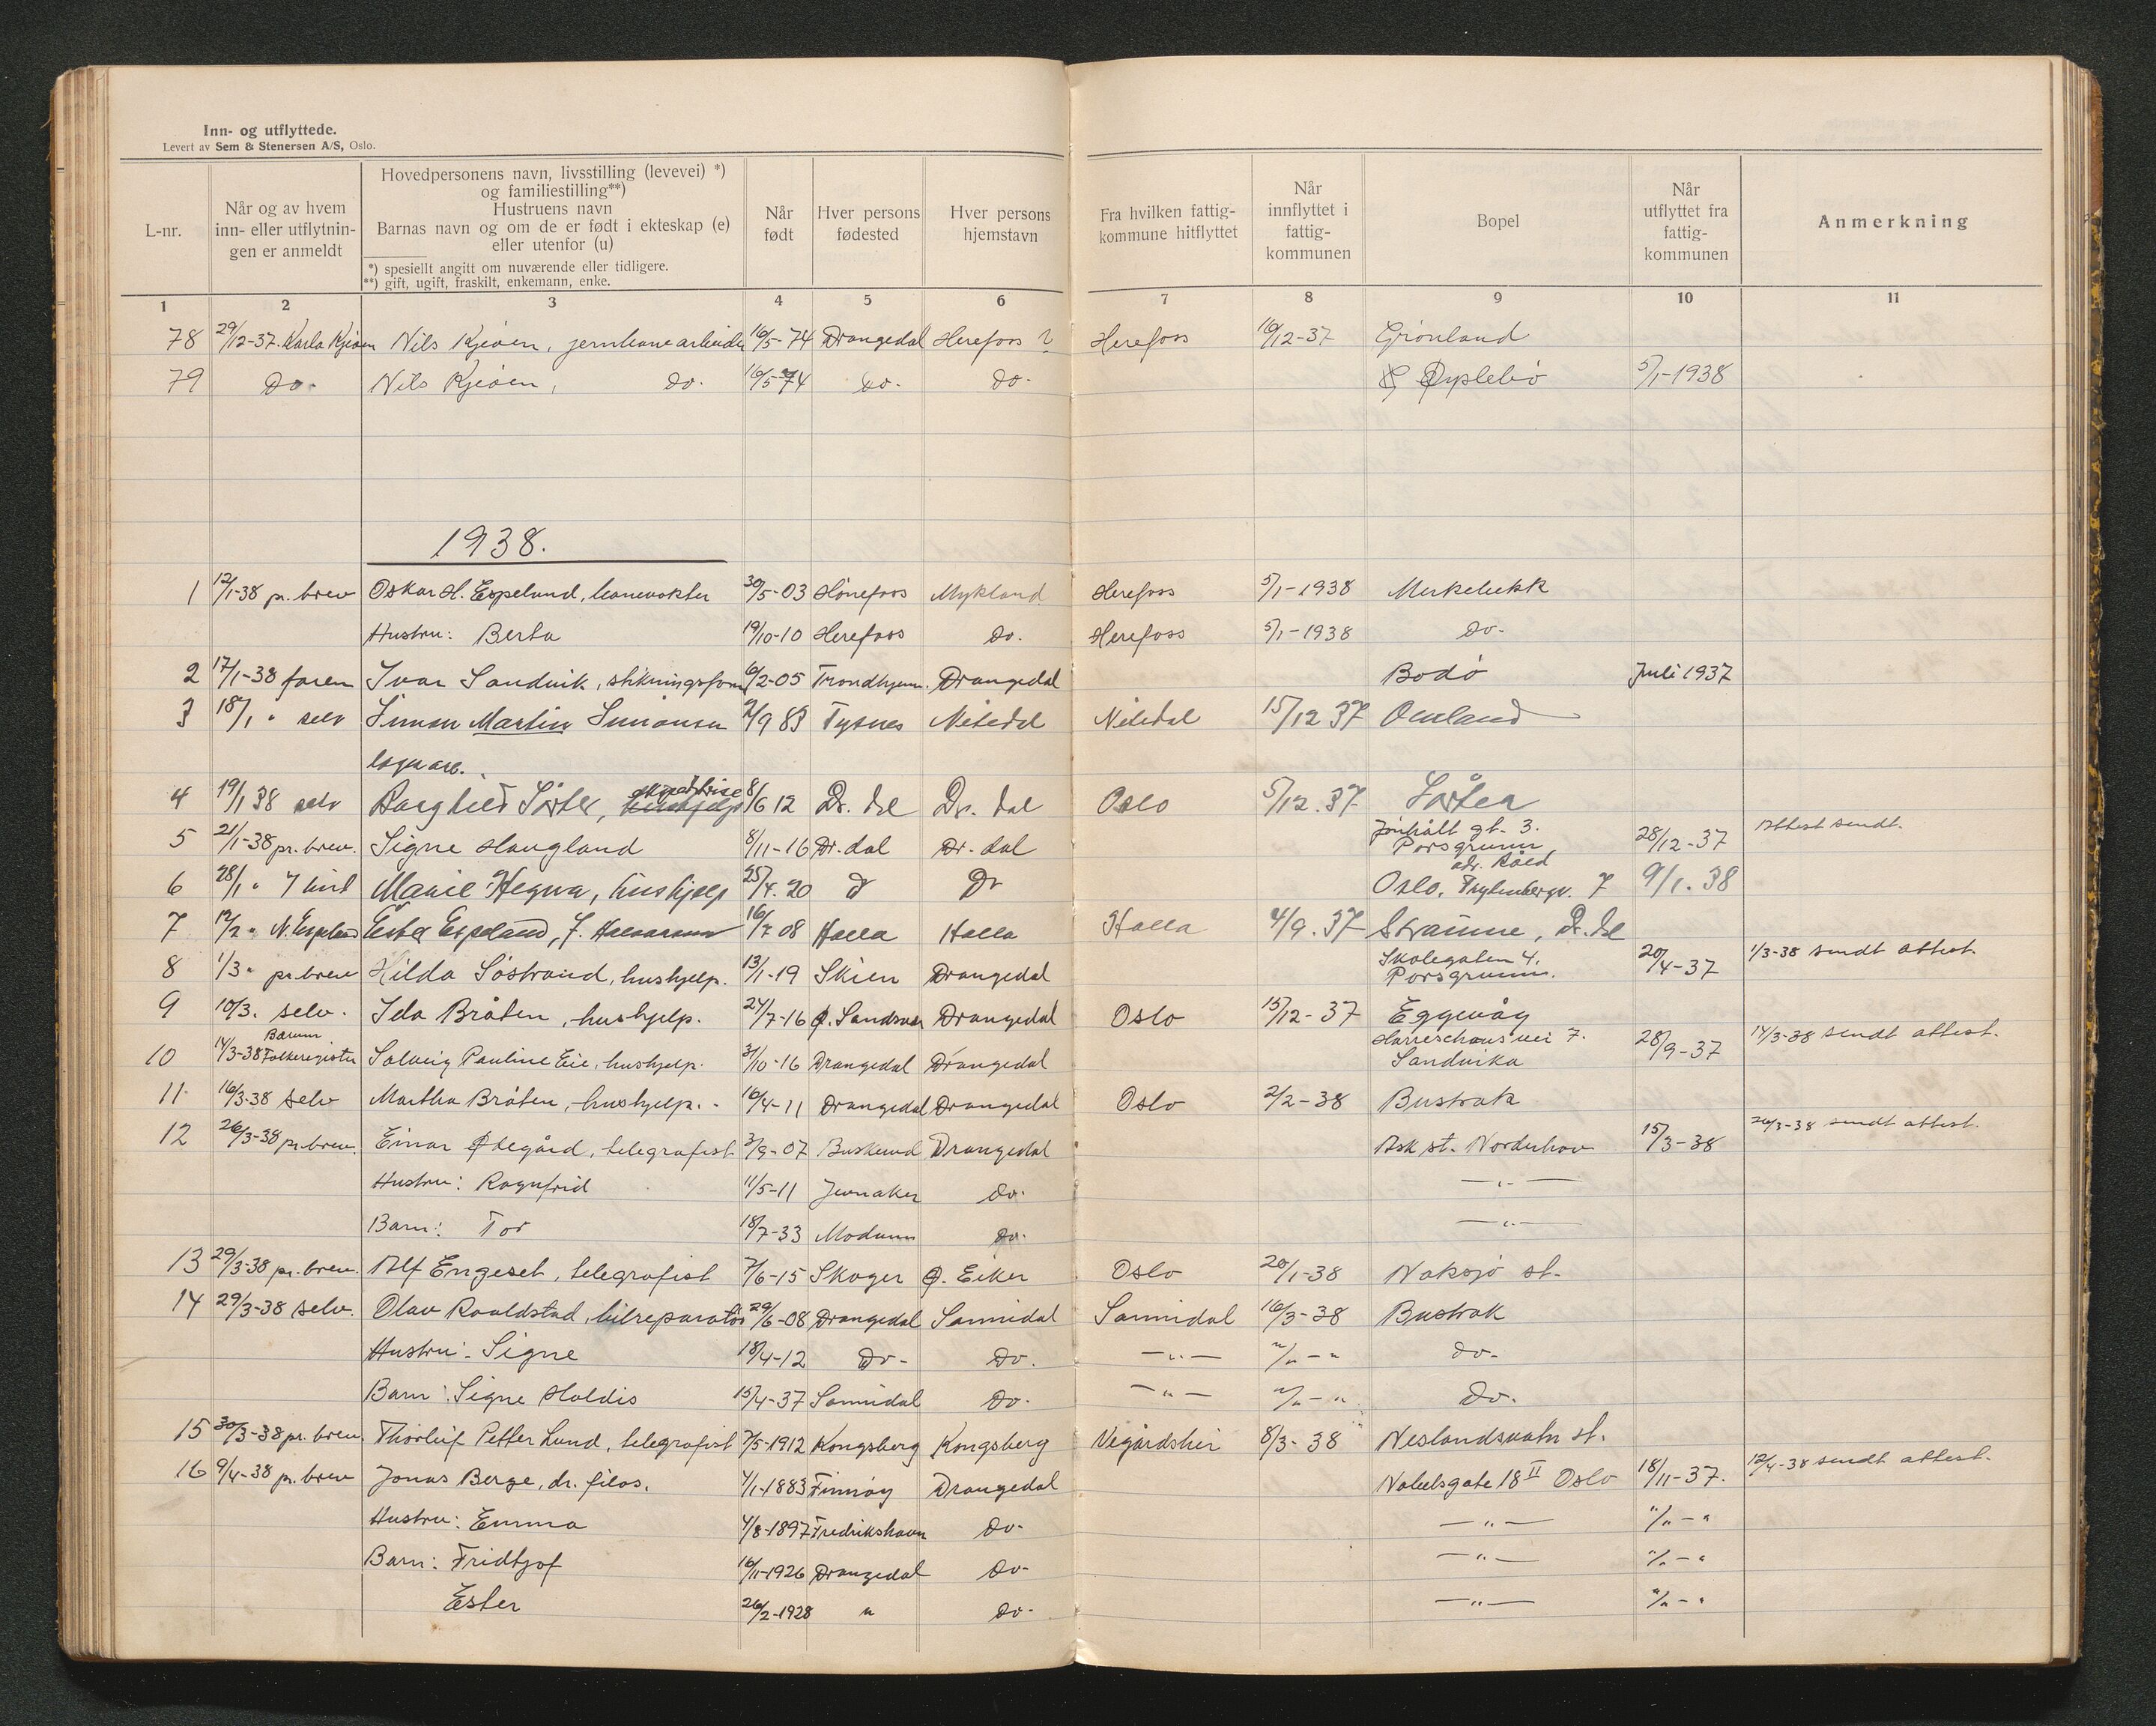 Inn- og utflyttede.
Levert av Sem & Stenersen A/S, Oslo.
L-nr. Når og av hvem inn- eller utflytnin-gen er anmeldt Hovedpersonens navn, livsstilling (levevei) *) og familiestilling**) Hustruens navn Barnas navn og om de er født i ekteskap (e) eller utenfor (u) *) spesiellt angitt om nuværende eller tidligere. **) gift, ugift, fraskilt, enkemann, enke. Når født Hver persons fødested Hver persons hjemstavn Fra hvilken fattig-kommune hitflyttet Når innflyttet i fattig-kommunen Bopel Når utflyttet fra fattig-kommunen Anmerkning
1 2 3 4 5 6 7 8 9 10 11
78 29/12-37. Karla Kjøen Nils Kjøen, jernbanearbeider 16/5-74 Drangedal Herefoss ? Herefoss 16/12-37 Grönland
79 Do. Nils Kjøen, do. 16/5-74 Do. Do. Dyslebö 5/1-1938
1938.
1 12/1-38 pr. brev Oskar H. Espelund, banevokter 30/5-03 Hönefoss Mykland Herefoss 5/1-1938 Merkebekk
Hustru: Berta 19/10-10 Herefoss Do. Herefoss 5/1-1938 Do-
2 17/1-38 faren Ivar Sandvik, 6/2-05 Trondhjem. Drangedal Bodö Juli 1937
3 18/1 " selv Simon Martin Simonsen 2/9 83 Tysnes Nitedal Nitedal 15/12 37 Omland
4 19/1 38 selv Borghild Sörter, ekspeditrise hushjelp 8/6 12 Dr. dal Dr. dal Oslo 5/12. 37
5 21/1-38 pr. brev. Signe Haugland 8/11-16 Dr. dal Dr. dal gt. 3. Porsgrunn 28/12-37 Attest sendt.
6 28/1 " Marie Hegna, hushjelp 25/4. 20 D Dr Oslo, 7 9/1. 38
7 12/2 " N. Espeland Ester Espeland, f. Halvorsen 16/7 08 Holla Holla Holla 4/9. 37 Straume, Dr. dal
8 1/3 " pr. brev Hilda Söstrand, hushjelp. 13/1-19 Skien Drangedal Skolegaten 4. Porsgrunn. 20/4-37 1/3-38 sendt attest.
9 10/3. selv. Ida Bråten, hushjelp. 24/7-16 Ø. Sandsvær Drangedal Oslo 15/12-37 Eggevåg
10 14/3-38 Bærum Folkeregister Solveig Pauline Eie, hushjelp. 31/10-16 Drangedal Drangedal Harreschous'vei 7. Sandvika 28/9-37 14/3-38 sendt attest.
11. 16/3-38 selv Martha Bråten, hushjelp. 16/4-11 Drangedal Drangedal Oslo 2/2-38 Bustrak
12 26/3-38 pr. brev. Einar Ødegård, telegrafist 3/9-07 Buskerud Drangedal Ask st. Norderhov 15/3-38 26/3-38 sendt attest.
Hustru: Ragnfrid 11/5-11 Jevnaker Do. —„—
Barn: Tor 18/7-33 Modum Do. —„—
13 29/3-38 pr. brev. Alf Engeset, telegrafist 7/6-15 Skoger Ø. Eiker Oslo 20/1-38 Naksjö st.
14 29/3-38 selv. Olav Roaldstad, bilreparatör 29/6-08 Drangedal Sannidal Sannidal 16/3-38 Bustrak
Hustru: Signe 18/4-12 Do- Do. —„— "/„-" do-
Barn: Signe Holdis 15/4-37 Sannidal Do. —„— "/„-" Do.
15 30/3-38 pr. brev. Thorleif Petter Lund, telegrafist 7/5-1912 Kongsberg Kongsberg Vegårdshei 8/3-38 Neslandsvatn st.
16 9/4-38 pr. brev Jonas Berge, dr. filos. 4/1-1883 Finnöy Drangedal Nobelsgate 18 II Oslo 18/11-37. 12/4-38 sendt attest.
Hustru: Emma 4/8-1897 Fredrikshavn Do- —„— "/„-"
Barn: Fridtjof 16/11-1926 Drangedal Do- —„— "/„-"
Ester 26/2-1928 " Do- —„— "/„-"